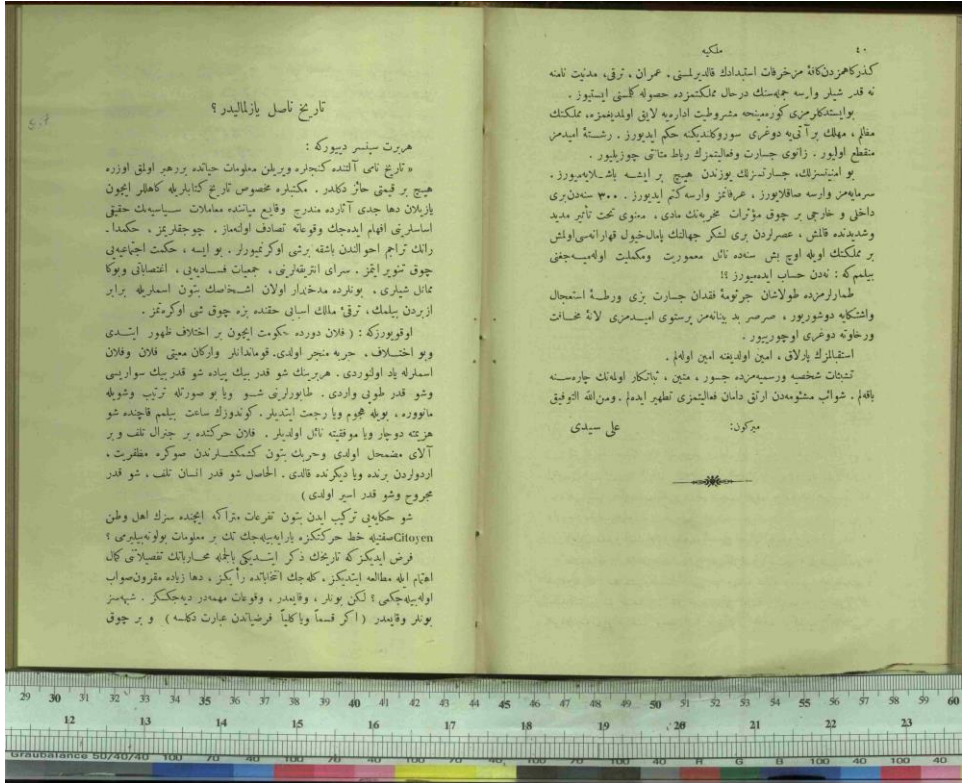 ٤٠
ملكيه
كذركاهمزدن كافهٔ مزخرفات استبدادك قالديرلسنى . عمران ، ترقى، مدنيت نامنه
نه قدر شيلر وارسه جمله‌سنك درحال مملكتمزده حصوله كلسنى ايستيورز .
بو ايستدكلرمزى كوره‌مينجه مشروطيت اداره‌يه لايق اولمديغمزه، مملكتك
مظلم ، مهلك بر آتى‌يه دوغرى سوروكلنديكنه حكم ايديورز . رشتهٔ اميدمز
منقطع اوليور . زانوى جسارت وفعاليتمزك رباط متانتى چوزيليور .
بو امنيتسزلك، جسارتسزلك يوزندن هيچ بر ايشه باشلايه‌ميورز .
سرمايه‌مز وارسه صاقلايورز ، عرفانمز وارسه كتم ايديورز . ٣٠٠ سنه‌دن برى
داخلى و خارجى بر چوق مؤثرات مخربه‌نك مادى ، معنوى تحت تأثير مديد
وشديدنده قالمش ، عصرلردن برى لشكر جهالتك پامال خيول قهارانه‌سى اولمش
بر مملكتك اويله اوچ بش سنه‌ده نائل معموريت ومكمليت اوله‌ميه‌جغنى
بيلم‌كه : نه‌دن حساب ايده‌ميورز ؟!
طمارلرمزده طولاشان جرثومهٔ فقدان جسارت بزى ورطهٔ استعجال
واشتكايه دوشوريور ، صرصر بد بينانه‌مز پرستوى اميدمزى لانهٔ مخافت
ورخاوته دوغرى اوچوريور .
استقبالمزك پارلاق ، امين اولديغنه امين اوله‌لم .
تشبثات شخصيه ورسميه‌مزده جسور ، متين ، ثباتكار اولمه‌نك چاره‌سنه
باقه‌لم . شوائب مشئومه‌دن ارتق دامان فعاليتمزى تطهير ايده‌لم . ومن الله التوفيق
ميركون: على سيدى
تاريخ ناصل يازلماليدر ؟
هربرت سپنسر دييوركه :
« تاريخ نامى آلتنده كنجلره ويريلن معلومات حياتده بررهبر اولمق اوزره
هيچ بر قيمتى حائز دكلدر . مكتبلره مخصوص تاريخ كتابلريله كاهللر ايچون
يازيلان دها جدى آثارده مندرج وقايع مياننده معاملات سياسيه‌نك حقيقى
اساسلرينى افهام ايده‌جك وقوعاته تصادف اولنه‌ماز . چوجقلريمز ، حكمدا-
رانك تراجم احوالندن باشقه برشى اوكرنميورلر . بو ايسه ، حكمت اجتماعيه‌يى
چوق تنوير ايتمز . سراى انتريقه‌لرينى ، جمعيات فساديه‌يى ، اغتصاباتى وبوكا
مماثل شيلرى . بونلرده مدخلدار اولان اشخاصك بتون اسملريله برابر
ازبردن بيلمك، ترقئ ممالك اسبابى حقنده بزه چوق شى اوكره‌تمز .
اوقويورزكه : ( فلان دورده حكومت ايچون بر اختلاف ظهور ايتدى
وبو اختلاف ، حربه منجر اولدى. قوماندانلر واركان معيتى فلان وفلان
اسملرله ياد اولنوردى . هربرينك شو قدر بيك پياده شو قدر بيك سواريسى
وشو قدر طوپى واردى . طابورلرينى شو ويا بو صورتله ترتيب وشويله
مانووره ، بويله هجوم ويا رجعت ايتديلر . كوندوزك ساعت بيلمم قاچنده شو
هزيمته دوچار ويا موفقيته نائل اولديلر . فلان حركتده بر جنرال تلف وبر
آلاى مضمحل اولدى وحربك بتون كشمكشلرندن صوكره مظفريت ،
اردولردن برنده ويا ديكرنده قالدى . الحاصل شو قدر انسان تلف ، شو قدر
مجروح وشو قدر اسير اولدى )
شو حكايه‌يى تركيب ايدن بتون تفرعات متراكمه ايچنده سزك اهل وطن
Citoyen صفتيله خط حركتكزه يارايه‌بيله‌جك تك بر معلومات بولونه‌بيليرمى ؟
فرض ايديكزكه تاريخك ذكر ايتديكى بالجمله محارباتك تفصيلاتنى كمال
اهتمام ايله مطالعه ايتديكز ، كله‌جك انتخاباتده رأيكز ، دها زياده مقرون صواب
اوله‌بيله‌جكمى ؟ لكن بونلر ، وقايعدر ، وقوعات مهمه‌در ديه‌جكسكز . شبهه‌سز
بونلر وقايعدر ( اكر قسماً وياكلياً فرضياتدن عبارت دكلسه ) و بر چوق
29 30 31 32 33 34 35 36 37 38 39 40 41 42 43 44 45 46 47 48 49 50 51 52 53 54 55 56 57 58 59 60
12 13 14 15 16 17 18 19 20 21 22 23